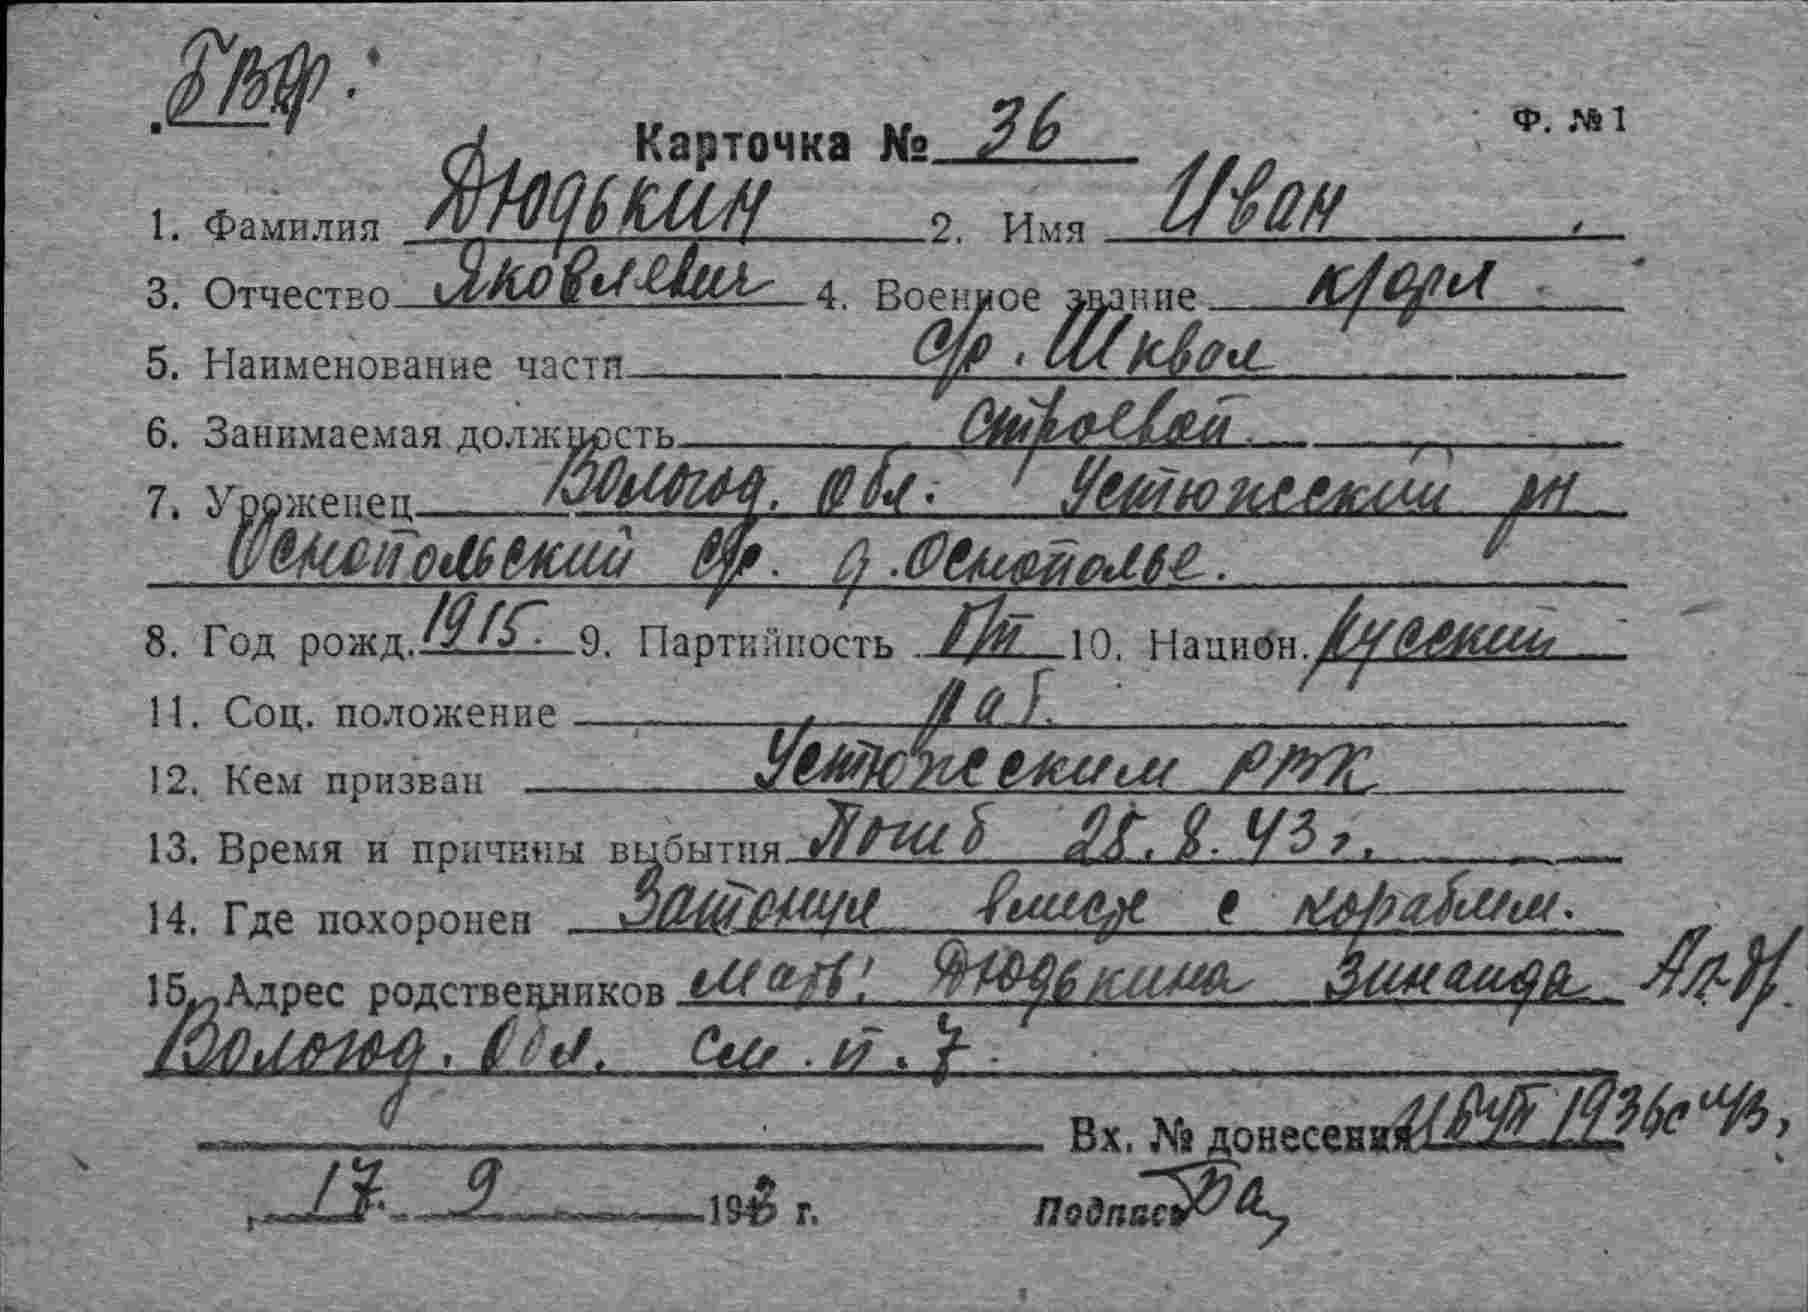 БВФ.
Ф. №1
Карточка № 36
1. Фамилия Дюдькин 2. Имя Иван
3. Отчество Яковлевич 4. Военное звание к/фл
5. Наименование части с/р. Шквал
6. Занимаемая должность строевой
7. Уроженец Вологод. обл. Устюжеский рн
Оснопольский с/с. д. Оснополье.
8. Год рожд. 1915. 9. Партийность б/п 10. Национ. русский
11. Соц. положение раб.
12. Кем призван Устюжеским РВК
13. Время и причины выбытия Погиб 28.8.43 г.
14. Где похоронен Затонул вместе с кораблем.
15. Адрес родственников мать: Дюдькина Зинаида
Вологод. обл. см. п. 7.
Вх. № донесения 1936с
17. 9 1943 г. Подпись